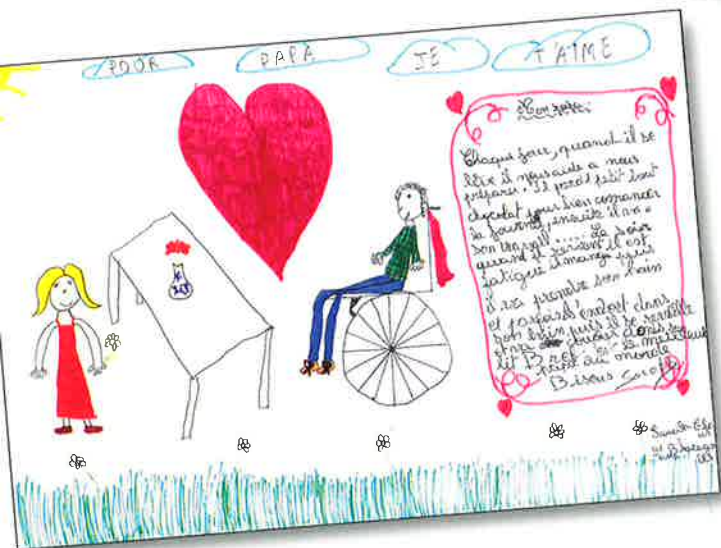 POUR PAPA JE T'AIME
Mon père:
Chaque jour, quand il se
lève il nous aide a nous
préparer. Il prend petit
chocolat pour bien commencer
sa journé, ensuite il va a
son travail ..... Le soir
quand il revient il est
fatigué il mange puis
il va prendre son bain
et s'endort dans
son bain puis il se réveille
dans son
lit Bref c'est le meilleur
papa du monde
Bisous